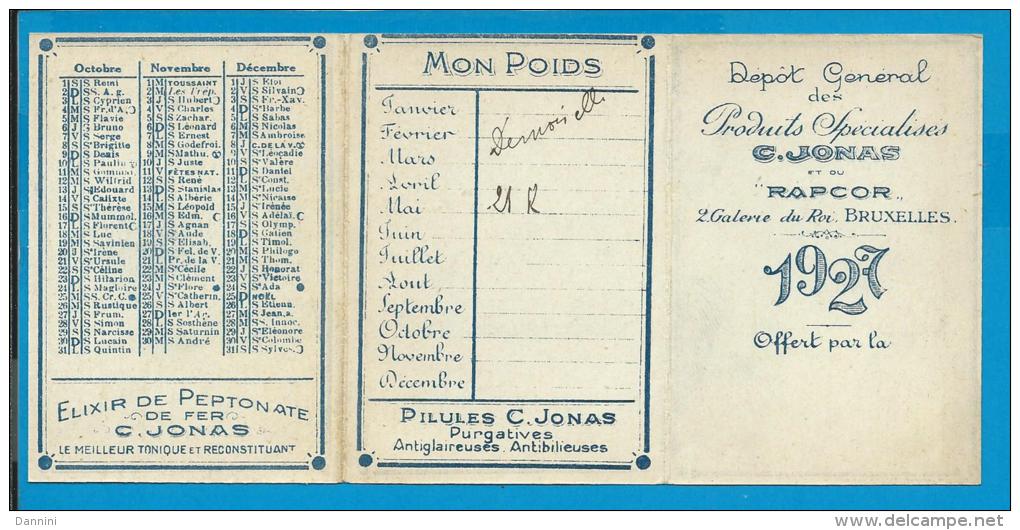 Octobre
1 S S Remi
2 D SS. A. g.
3 L S Cyprien
4 M S Fr. d'A.
5 M S Flavie
6 J S Bruno
7 V S Serge
8 S Ste Brigitte
9 D S Denis
10 L S Paulin
11 M S Gommai.
12 M S Wilfrid
13 J S Edouard
14 V S Calixte
15 S Ste Thérèse
16 D S Mummol.
17 L S Florent
18 M S Luc
19 M S Savinien
20 J Ste Irène
21 V Ste Ursule
22 S Ste Céline
23 D S Hilarion
24 L S Magloire
25 M SS. Cr. C.
26 M S Rustique
27 J S Frum.
28 V S Simon
29 S S Narcisse
30 D S Lucain
31 L S Quintin
Novembre
1 M TOUSSAINT
2 M Les Trép.
3 J S Hubert
4 V S Charles
5 S S Zachar.
6 D S Léonard
7 L S Ernest
8 M S Godefroi.
9 M S Mathu.
10 J S Juste
11 V FÊTES NAT.
12 S S René
13 D S Stanislas
14 L S Albéric
15 M S Léopold
16 M S Edm.
17 J S Agnan
18 V S Aude
19 S S Elisab.
20 D S Fel. de V.
21 L Pr. de la V.
22 M Ste Cécile
23 M S Clément
24 J Ste Flore
25 V Ste Catherin.
26 S S Albert
27 D 1er l'Av.
28 L S Sosthène
29 M S Saturnin
30 M S André
Décembre
1 J S Eloi
2 V S Silvain
3 S S Fr.-Xav.
4 D Ste Barbe
5 L S Sabas
6 M S Nicolas
7 M S Ambroise
8 J C. DE LA V.
9 V S Léocadie
10 S Ste Valère
11 D S Daniel
12 L Ste Const.
13 M Ste Lucie
14 M S Nicaise
15 J S Irénée
16 V S Adélaï.
17 S S Olymp.
18 D S Gatien
19 L S Timol.
20 M S Philogo
21 M S Thom.
22 J S Honorat
23 V Ste Victoire
24 S Ste Ada
25 D NOËL
26 L S Etienn.
27 M S Jean, a.
28 M SS. Innoc.
29 J S Eléonore
30 V Ste Colombe
31 S S Sylves.
ELIXIR DE PEPTONATE
DE FER
C. JONAS
LE MEILLEUR TONIQUE ET RECONSTITUANT
MON POIDS
Janvier
Février
Mars
Avril
Mai
Juin
Juillet
Août
Septembre
Octobre
Novembre
Décembre
Demoiselle
21 K
PILULES C. JONAS
Purgatives
Antiglaireuses. Antibilieuses
Dépôt Général
des
Produits Spécialisés
C. JONAS
ET DU
"RAPCOR"
2. Galerie du Roi, BRUXELLES.
1927
Offert par la
Dannini
delcampe.net